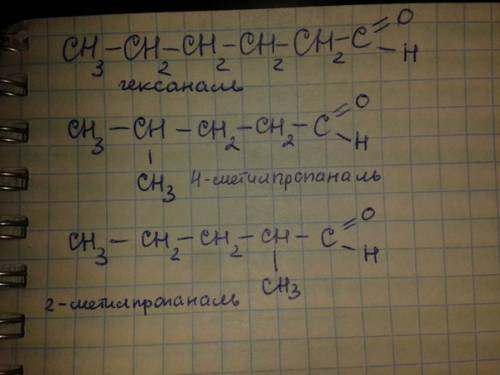 CH₃ — CH₂ — CH₂ — CH₂ — CH₂ — C =O — H
гексаналь
CH₃ — CH — CH₂ — CH₂ — C =O — H
CH₃ 4-метилпропаналь
CH₃ — CH₂ — CH₂ — CH — C =O — H
CH₃
2-метилпропаналь